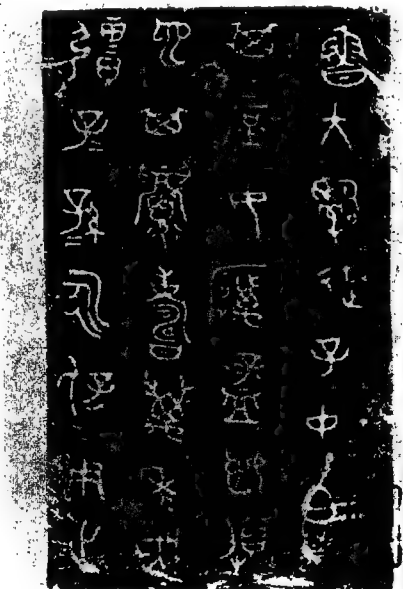 魯大嗣徒子中白乍
其庶女厲孟姬媵
它其眉壽萬年無
疆子=孫=永保用之